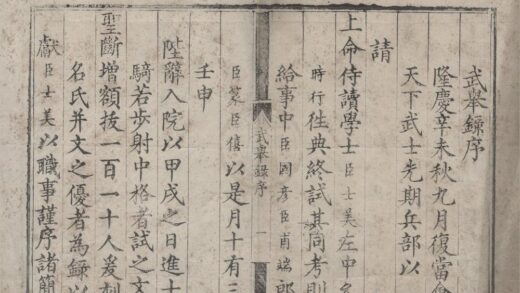 武舉錄序
隆慶辛未秋九月復當會
天下武士先期兵部以
請
上命侍讀學士臣士美左中
時行徃典終試其同考則
給事中臣國彥臣甫端郎
武舉錄序 一
臣篆臣僖以是月十有三
壬申
陛辭入院以甲戌之日進
騎若步射中格者試之文
聖斷增額拔一百一十人爰刻
名氏并文之優者為錄以
獻臣士美以職事謹序諸簡